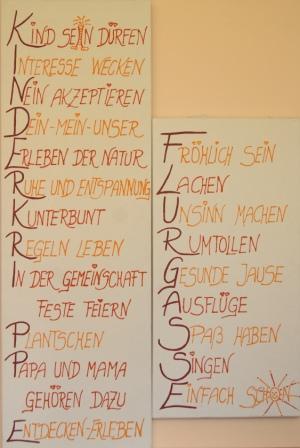 KIND SEIN DÜRFEN
INTERESSE WECKEN
NEIN AKZEPTIEREN
DEIN-MEIN-UNSER
ERLEBEN DER NATUR
RUHE UND ENTSPANNUNG
KUNTERBUNT
REGELN LEBEN
IN DER GEMEINSCHAFT
FESTE FEIERN
PLANTSCHEN
PAPA UND MAMA
GEHÖREN DAZU
ENTDECKEN-ERLEBEN
FRÖHLICH SEIN
LACHEN
UNSINN MACHEN
RUMTOLLEN
GESUNDE JAUSE
AUSFLÜGE
SPAß HABEN
SINGEN
EINFACH SCHÖN